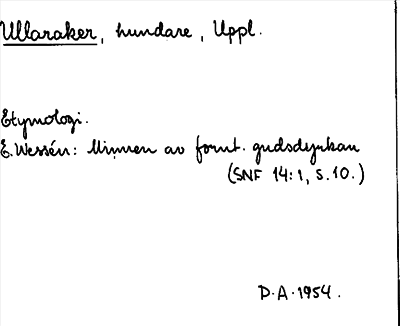 Ullaraker, hundare, Uppl.
Etymologi.
E. Wessén: Minnen av fornt. gudsdyrkan
(SNF 14:1, S.10.)
D.A.1954.